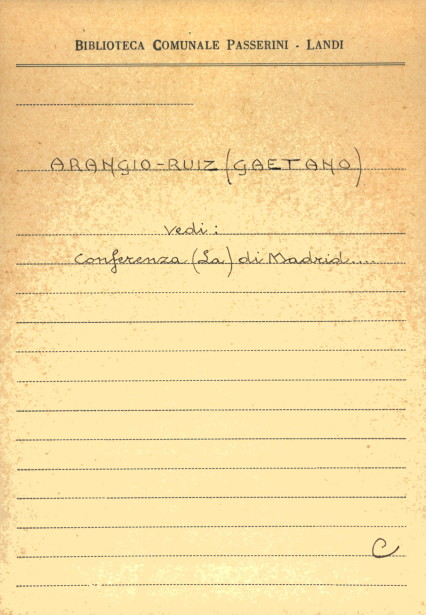 BIBLIOTECA COMUNALE PASSERINI - LANDI
ARANGIO-RUIZ (GAETANO)
Vedi:
Conferenza (La) di Madrid....
C